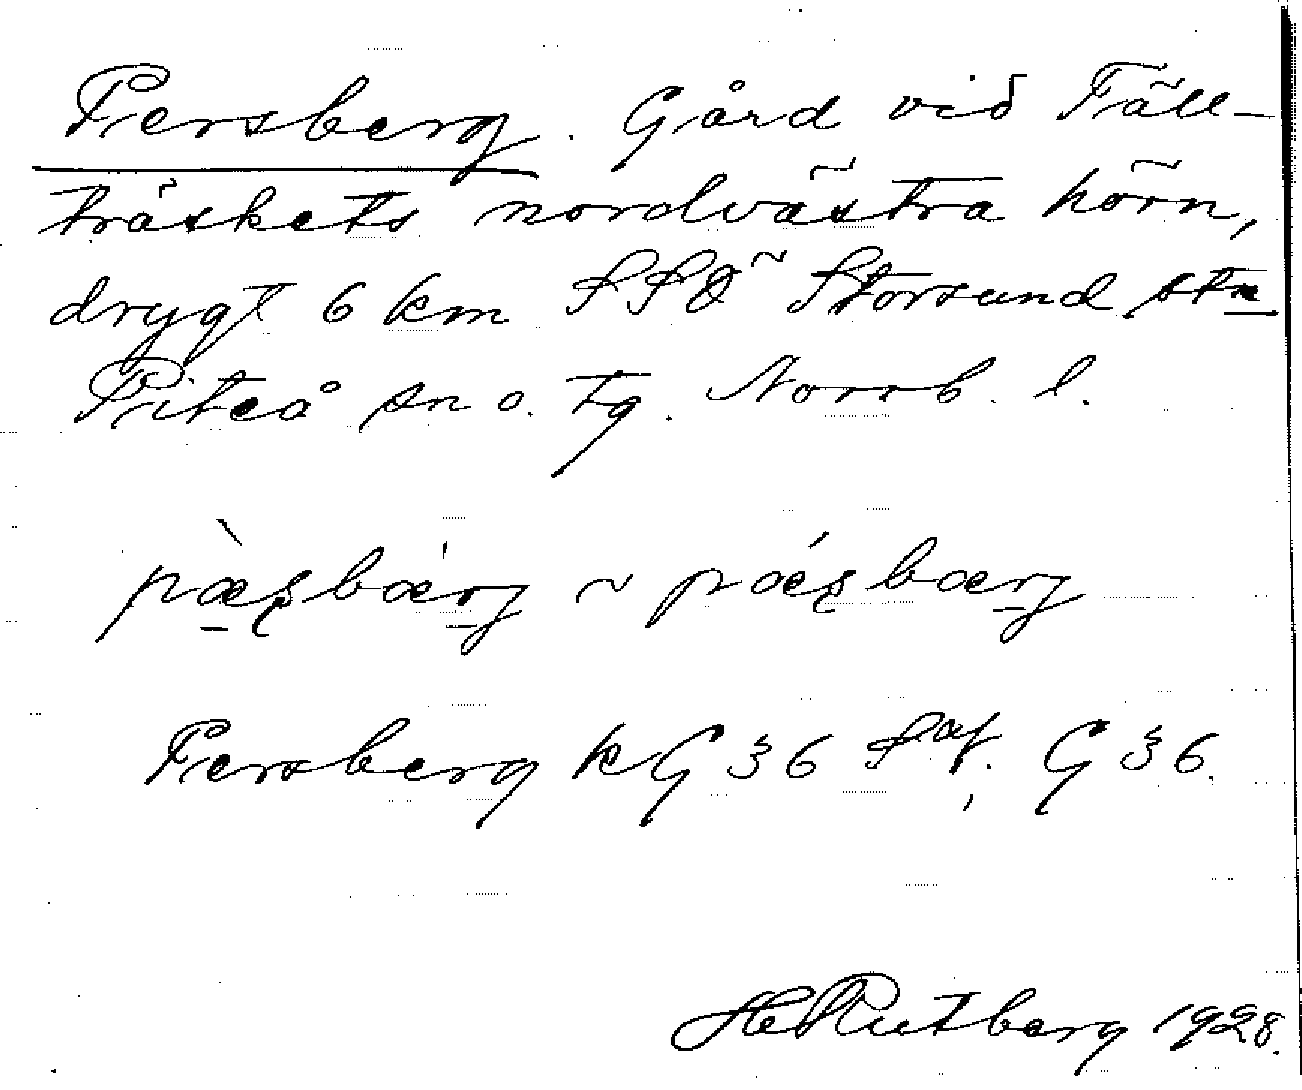 Persberg. Gård vid Fäll-
träskets nordvästra hörn,
drygt 6 km SSÖ Storsund stn
Piteå sn o. tg. Norrb. l.
pæ̀ʂbær̍g ~ pǽʂbærg
Persberg kG 36 Saf. G 36.
H Rutberg 1928.